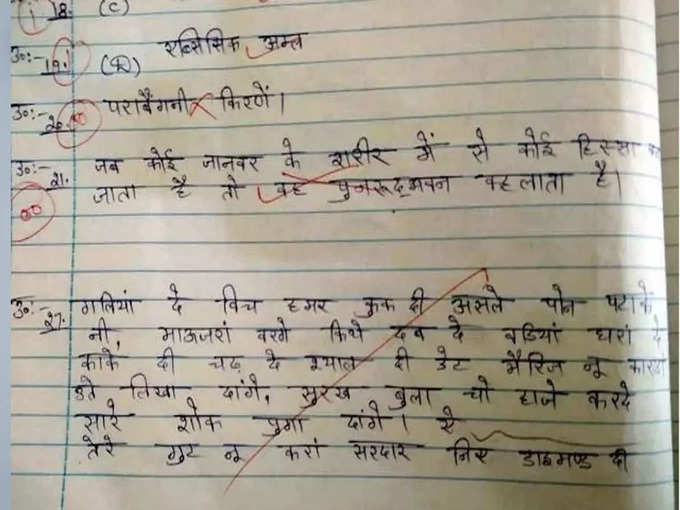 i 18. (C)
उ०:- 19. (D) एब्सिसिक अम्ल
उ०:- 20. पराबैंगनी किरणें।
उ०:- 21. जब कोई जानवर के शरीर में से कोई हिस्सा
00 जाता है तो वह पुनरूद्भवन कहलाता है।
उ०:- 27. गलियां दे विच हमर कुक दी असले पोन पटाके
नी, माऊजरां वरगे किथे दब दे वडियां घरां दे
काके दी चढ़ दे श्याल दी डेट मैरिज नू कारडा
उते लिखा दांगे, सुरख बुला चो हाजे करदे
सारे शोक पुगा दांगे। से
तेरे गुट नू करां सरदार निए डाइमण्ड दी